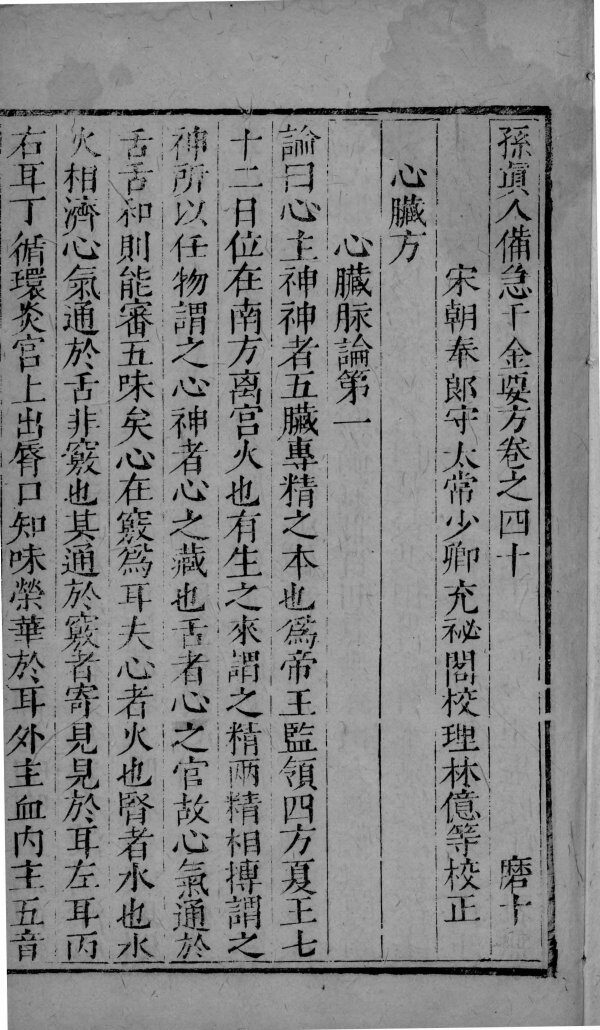 孫眞人備急千金要方卷之四十 磨十
宋朝奉郎守太常少卿充祕閣校理林億等校正
心臟方
心臟脉論第一
論曰心主神神者五臟專精之本也爲帝王監領四方夏王七
十二日位在南方离宫火也有生之來謂之精兩精相搏謂之
神所以任物謂之心神者心之藏也舌者心之官故心氣通於
舌舌和則能審五味矣心在竅爲耳夫心者火也腎者水也水
火相濟心氣通於舌非竅也其通於竅者寄見見於耳左耳丙
右耳丁循環炎宫上出脣口知味榮華於耳外主血内主五音